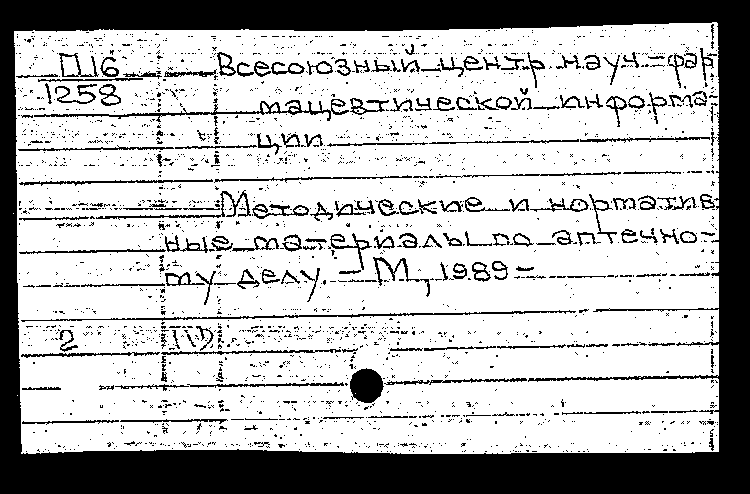 П16 Всесоюзный центр науч.-фар
1258 мацевтической информа-
ции
Методические и норматив
ные материалы по аптечно-
му делу. – М., 1989 –
2